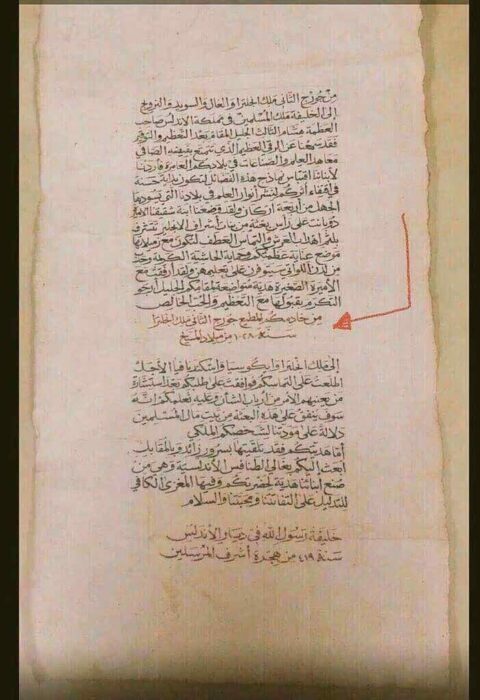 من جورج الثاني ملك انجلترا والغال والسويد والنرويج
إلى الخليفة ملك المسلمين في مملكة الأندلس صاحب
العظمة هشام الثالث الجليل المقام بعد التعظيم والتوقير
فقد سمعنا عن الرقي العظيم الذي تتمتع بفيضه الصافي
معاهد العلم والصناعات في بلادكم العامرة فأردنا
لأبنائنا اقتباس نماذج هذه الفضائل لتكون بداية حسنة
في اقتفاء أثركم لنشر أنوار العلم في بلادنا التي يسودها
الجهل من أربعة أركان ولقد وضعنا ابنة شقيقنا الأميرة
دوبانت على رأس بعثة من بنات أشراف الإنجليز تتشرف
بلثم أهداب العرش والتماس العطف لتكون مع زميلاتها
موضع عناية عظمتكم وحماية الحاشية الكريمة وحدب
من لدن اللواتي سيتوفرن على تعليمهن ولقد أرفقت مع
الأميرة الصغيرة هدية متواضعة لمقامكم الجليل أرجو
التكرم بقبولها مع التعظيم والحب الخالص
من خادمكم المطيع جورج الثاني ملك انجلترا
سنة ١٠٢٨ من ميلاد المسيح
إلى ملك انجلترا وايكوسيا واسكندنافيا الأجل
اطلعت على التماسكم فوافقت على طلبكم بعد استشارة
من يعنيهم الأمر من أرباب الشأن وعليه نعلمكم انه
سوف ينفق على هذه البعثة من بيت مال المسلمين
دلالة على مودتنا لشخصكم الملكي
أما هديتكم فقد تلقيتها بسرور زائد وبالمقابل
ابعث اليكم بغالي الطنافس الأندلسية وهي من
صنع أبنائنا هدية لحضرتكم وفيها المغزى الكافي
للتدليل على التفاتتنا ومحبتنا والسلام
خليفة رسول الله في ديار الأندلس
سنة ٤١٩ من هجرة أشرف المرسلين